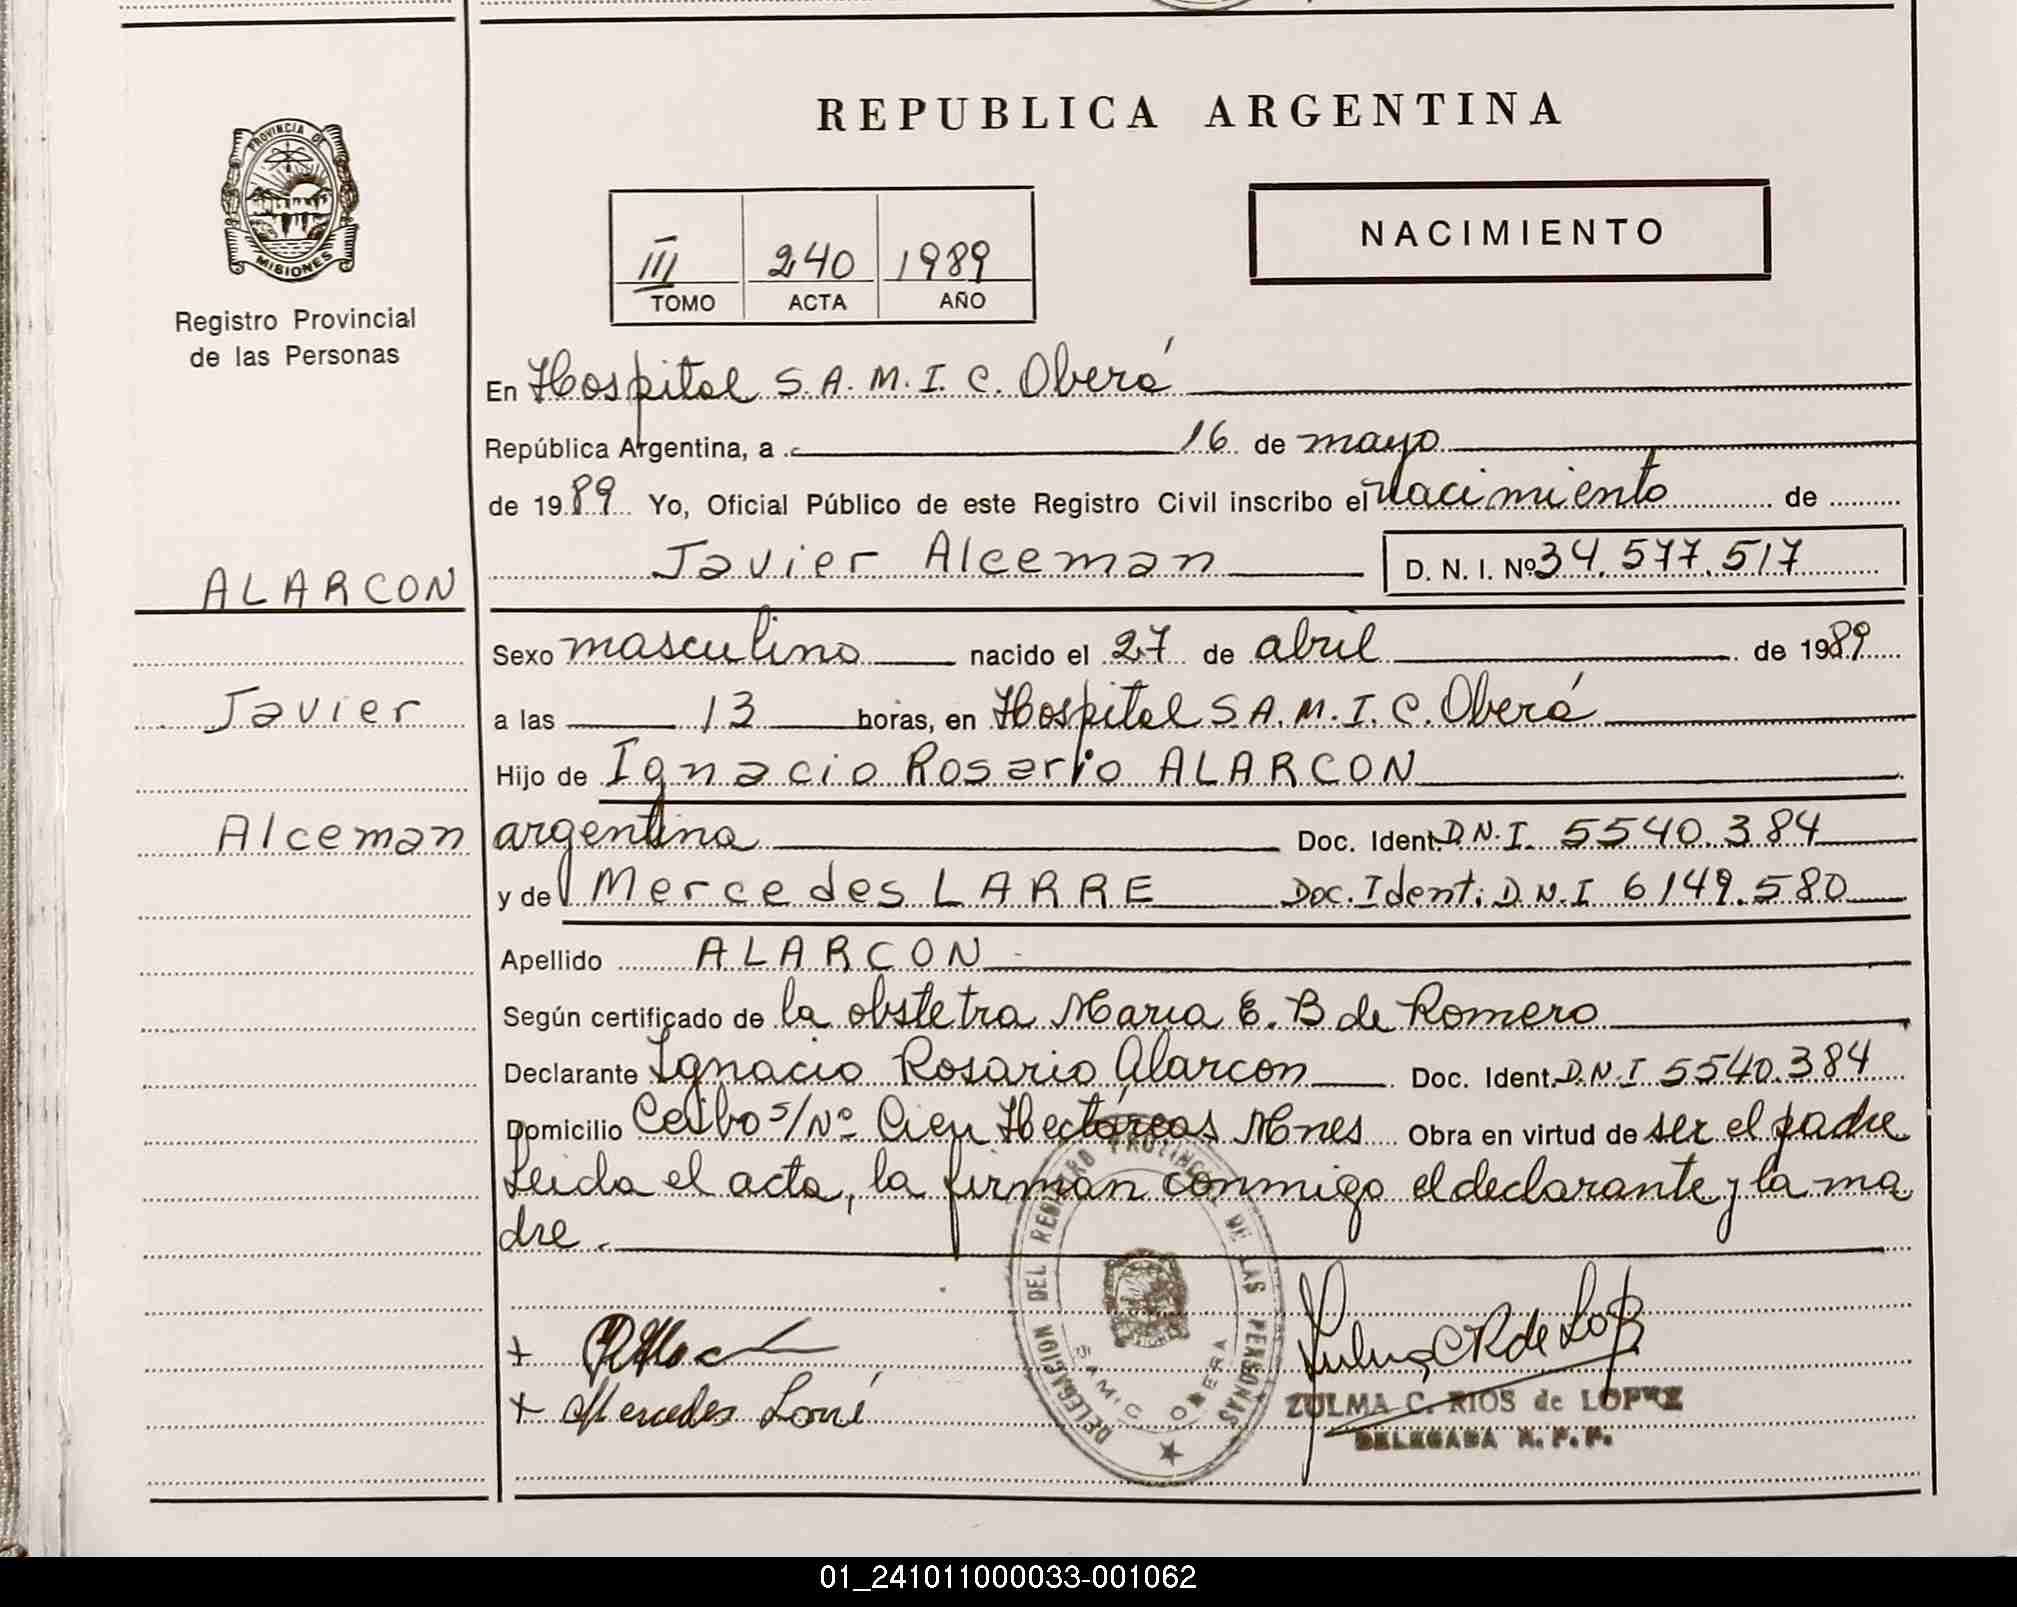 REPUBLICA ARGENTINA
PROVINCIA DE
MISIONES
Registro Provincial
de las Personas
III 240 1989
TOMO ACTA AÑO
NACIMIENTO
En Hospital S.A.M.I.C. Oberá
República Argentina, a 16 de mayo
de 1989 Yo, Oficial Público de este Registro Civil inscribo el nacimiento de
Javier Alceman D. N. I. Nº 34.577.517
ALARCON
Sexo masculino nacido el 27 de abril de 1989
Javier
a las 13 horas, en Hospital S.A.M.I.C. Oberá
Hijo de Ignacio Rosario ALARCON
Alceman
argentina Doc. Ident. D.N.I. 5540.384
y de Mercedes LARRE Doc. Ident: D.N.I 6149.580
Apellido ALARCON
Según certificado de la obstetra Maria E. B de Romero
Declarante Ignacio Rosario Alarcon Doc. Ident. D.N.I 5540.384
Domicilio Ceibo s/Nº Cien Hectáreas Mnes Obra en virtud de ser el padre
Leida el acta, la firman conmigo el declarante y la ma
dre.
DELEGACION DEL REGISTRO PROVINCIAL DE LAS PERSONAS
SAMIC OBERA
+
+ Mercedes Larré
Zulma C R de Lopez
ZULMA C. RIOS de LOPEZ
DELEGADA R. P. P.
01_241011000033-001062